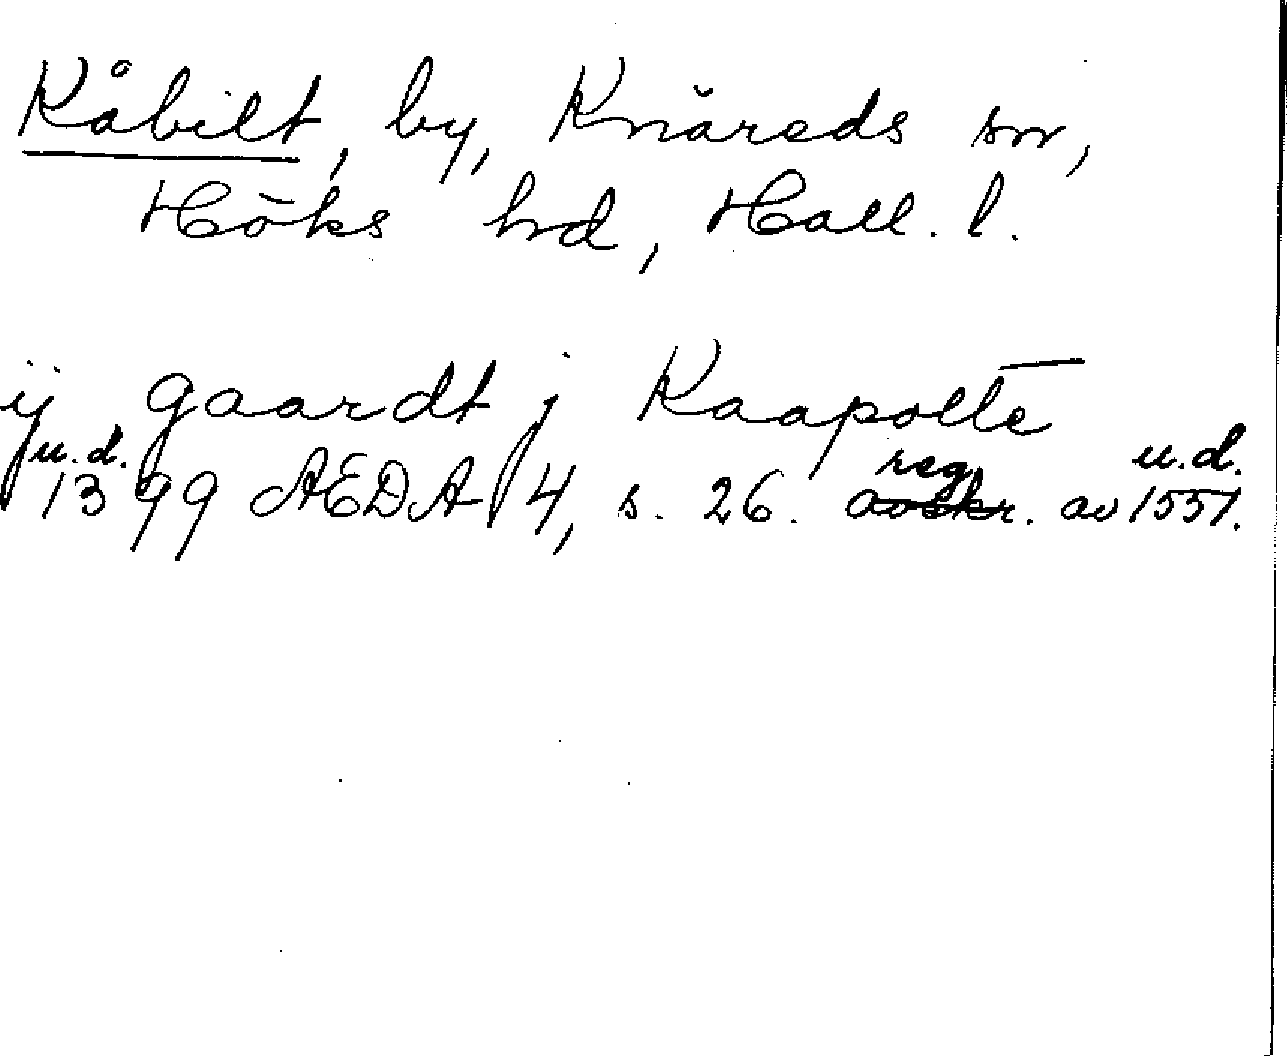 Kåbilt, by, Knäreds sn,
Höks hd, Hall. l.
ij gaardt j Kaapolte
u.d. reg. u.d.
1399 ÆDA 4, s. 26. avskr. av 1551.